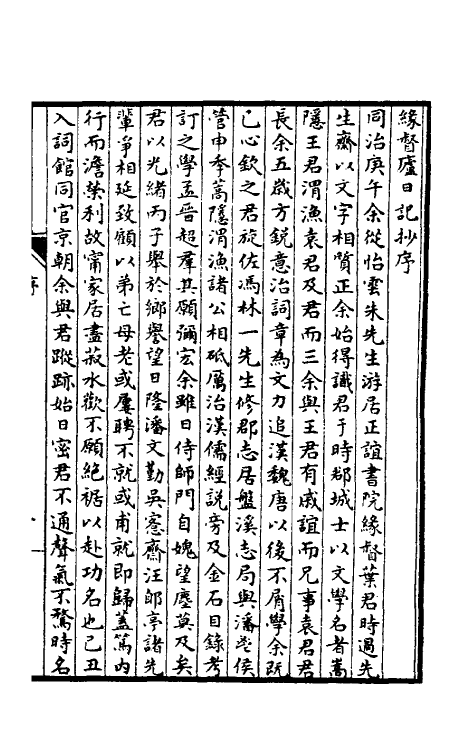 緣督廬日記抄序
同治庚午余從怡雲朱先生游居正誼書院緣督葉君時過先
生齋以文字相質正余始得識君于時郡城士以文學名者嵩
隱王君渭漁袁君及君而三余與王君有戚誼而兄事袁君君
長余五歲方銳意治詞章為文力追漢魏唐以後不屑學余既
已心欽之君旋佐馮林一先生修郡志居盤溪志局與潘瘦侯
管申季嵩隱渭漁諸公相砥厲治漢儒經說旁及金石目錄考
訂之學孟晉超羣其願彌宏余雖日侍師門自媿望塵莫及矣
君以光緒丙子舉於鄉譽望日隆潘文勤吳愙齋汪郎亭諸先
輩爭相延致顧以弟亡母老或屢聘不就或甫就即歸蓋篤內
行而澹榮利故甯家居盡菽水歡不願絕裾以赴功名也己丑
入詞館同官京朝余與君蹤跡始日密君不通聲氣不騖時名
序
一